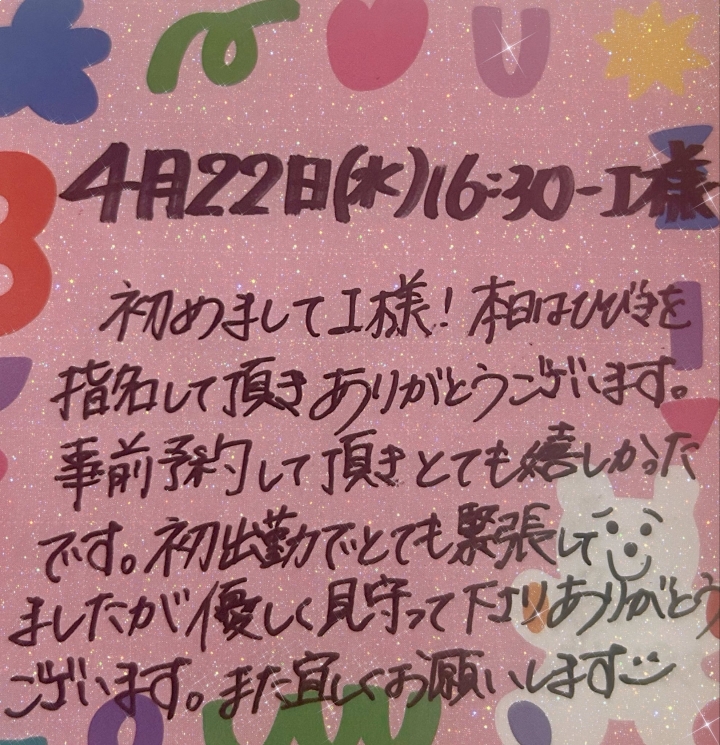 4月22日(水)16:30-I様
初めましてI様！本日はひびきを
指名して頂きありがとうございます。
事前予約して頂きとても嬉しかった
です。初出勤でとても緊張して
ましたが優しく見守って下さりありがとう
ございます。また宜しくお願いします